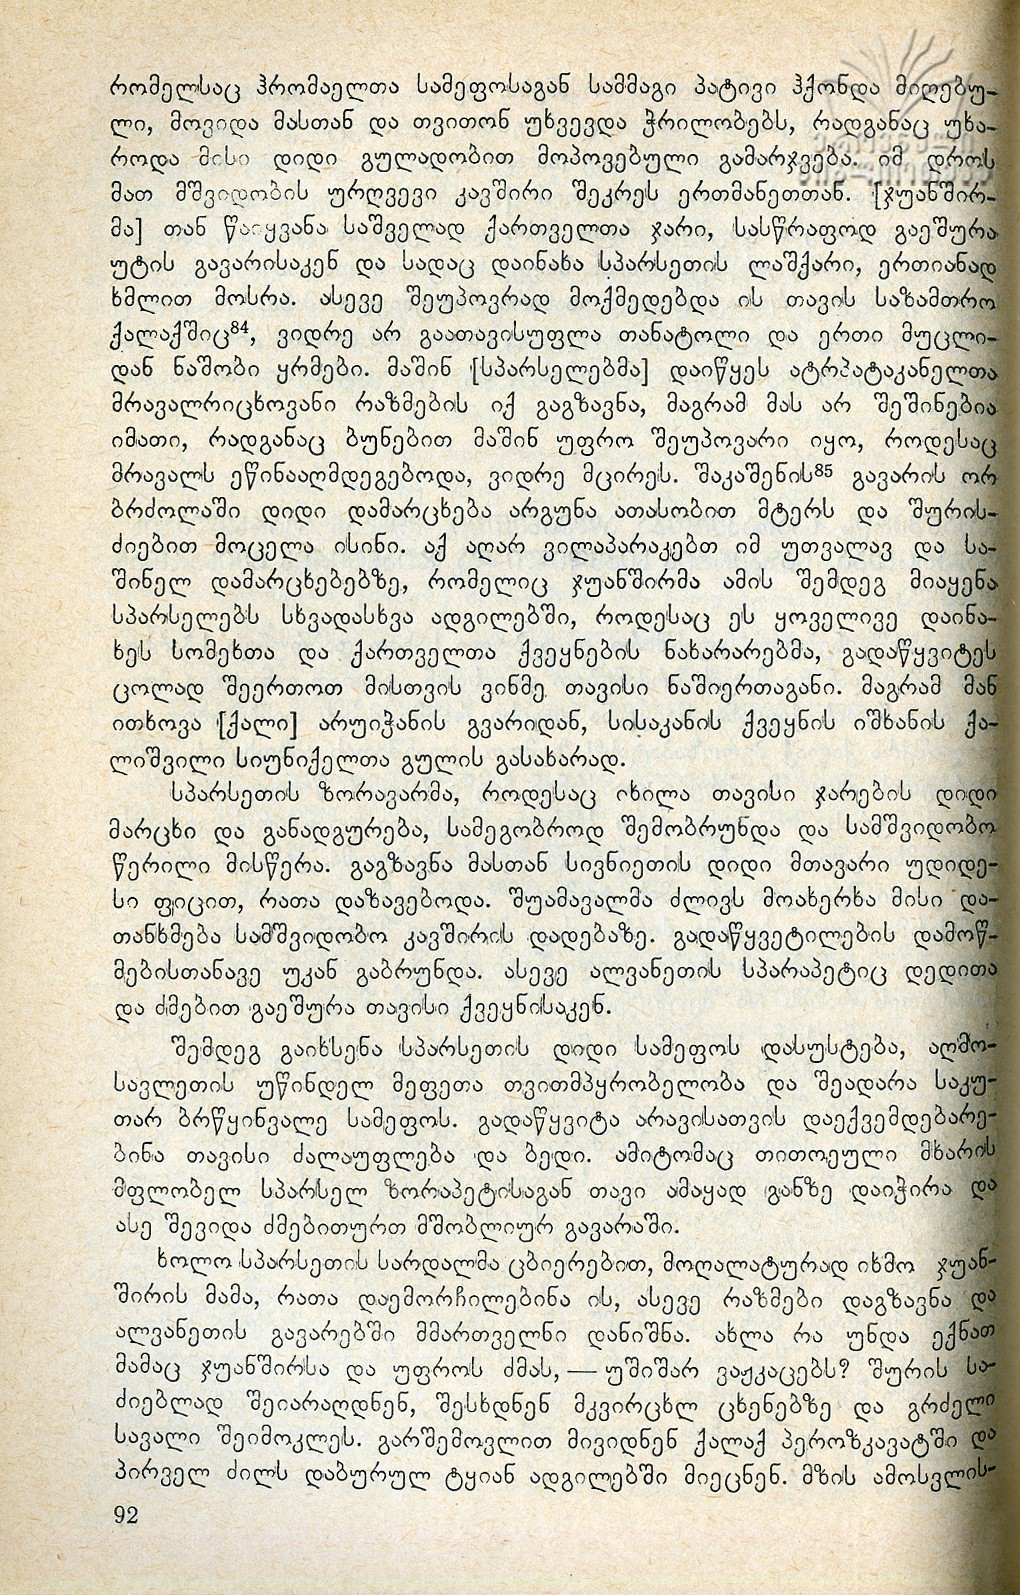 რომელსაც ჰრომაელთა სამეფოსაგან სამმაგი პატივი ჰქონდა მიღებუ-
ლი, მოვიდა მასთან და თვითონ უხვევდა ჭრილობებს, რადგანაც უხა-
როდა მისი დიდი გულადობით მოპოვებული გამარჯვება. იმ დროს
მათ მშვიდობის ურღვევი კავშირი შეკრეს ერთმანეთთან. [ჯუანშირ-
მა] თან წაიყვანა საშველად ქართველთა ჯარი, სასწრაფოდ გაეშურა
უტის გავარისაკენ და სადაც დაინახა სპარსეთის ლაშქარი, ერთიანად
ხმლით მოსრა. ასევე შეუპოვრად მოქმედებდა ის თავის საზამთრო
ქალაქშიც⁸⁴, ვიდრე არ გაათავისუფლა თანატოლი და ერთი მუცლი-
დან ნაშობი ყრმები. მაშინ [სპარსელებმა] დაიწყეს ატრპატაკანელთა
მრავალრიცხოვანი რაზმების იქ გაგზავნა, მაგრამ მას არ შეშინებია
იმათი, რადგანაც ბუნებით მაშინ უფრო შეუპოვარი იყო, როდესაც
მრავალს ეწინააღმდეგებოდა, ვიდრე მცირეს. შაკაშენის⁸⁵ გავარის ორ
ბრძოლაში დიდი დამარცხება არგუნა ათასობით მტერს და შურის-
ძიებით მოცელა ისინი. აქ აღარ ვილაპარაკებთ იმ უთვალავ და სა-
შინელ დამარცხებებზე, რომელიც ჯუანშირმა ამის შემდეგ მიაყენა
სპარსელებს სხვადასხვა ადგილებში, როდესაც ეს ყოველივე დაინა-
ხეს სომეხთა და ქართველთა ქვეყნების ნახარარებმა, გადაწყვიტეს
ცოლად შეერთოთ მისთვის ვინმე თავისი ნაშიერთაგანი. მაგრამ მან
ითხოვა [ქალი] არუიჭანის გვარიდან, სისაკანის ქვეყნის იშხანის ქა-
ლიშვილი სიუნიქელთა გულის გასახარად.
სპარსეთის ზორავარმა, როდესაც იხილა თავისი ჯარების დიდი
მარცხი და განადგურება, სამეგობროდ შემობრუნდა და სამშვიდობო
წერილი მისწერა. გაგზავნა მასთან სივნიეთის დიდი მთავარი უდიდე-
სი ფიცით, რათა დაზავებოდა. შუამავალმა ძლივს მოახერხა მისი და-
თანხმება სამშვიდობო კავშირის დადებაზე. გადაწყვეტილების დამოწ-
მებისთანავე უკან გაბრუნდა. ასევე ალვანეთის სპარაპეტიც დედითა
და ძმებით გაეშურა თავისი ქვეყნისაკენ.
შემდეგ გაიხსენა სპარსეთის დიდი სამეფოს დასუსტება, აღმო-
სავლეთის უწინდელ მეფეთა თვითმპყრობელობა და შეადარა საკუ-
თარ ბრწყინვალე სამეფოს. გადაწყვიტა არავისათვის დაექვემდებარე-
ბინა თავისი ძალაუფლება და ბედი. ამიტომაც თითოეული მხარის
მფლობელ სპარსელ ზორაპეტისაგან თავი ამაყად განზე დაიჭირა და
ასე შევიდა ძმებითურთ მშობლიურ გავარაში.
ხოლო სპარსეთის სარდალმა ცბიერებით, მოღალატურად იხმო ჯუან-
შირის მამა, რათა დაემორჩილებინა ის, ასევე რაზმები დაგზავნა და
ალვანეთის გავარებში მმართველნი დანიშნა. ახლა რა უნდა ექნათ
მამაც ჯუანშირსა და უფროს ძმას, — უშიშარ ვაჟკაცებს? შურის სა-
ძიებლად შეიარაღდნენ, შესხდნენ მკვირცხლ ცხენებზე და გრძელი
სავალი შეიმოკლეს. გარშემოვლით მივიდნენ ქალაქ პეროზკავატში და
პირველ ძილს დაბურულ ტყიან ადგილებში მიეცნენ. მზის ამოსვლის-
92